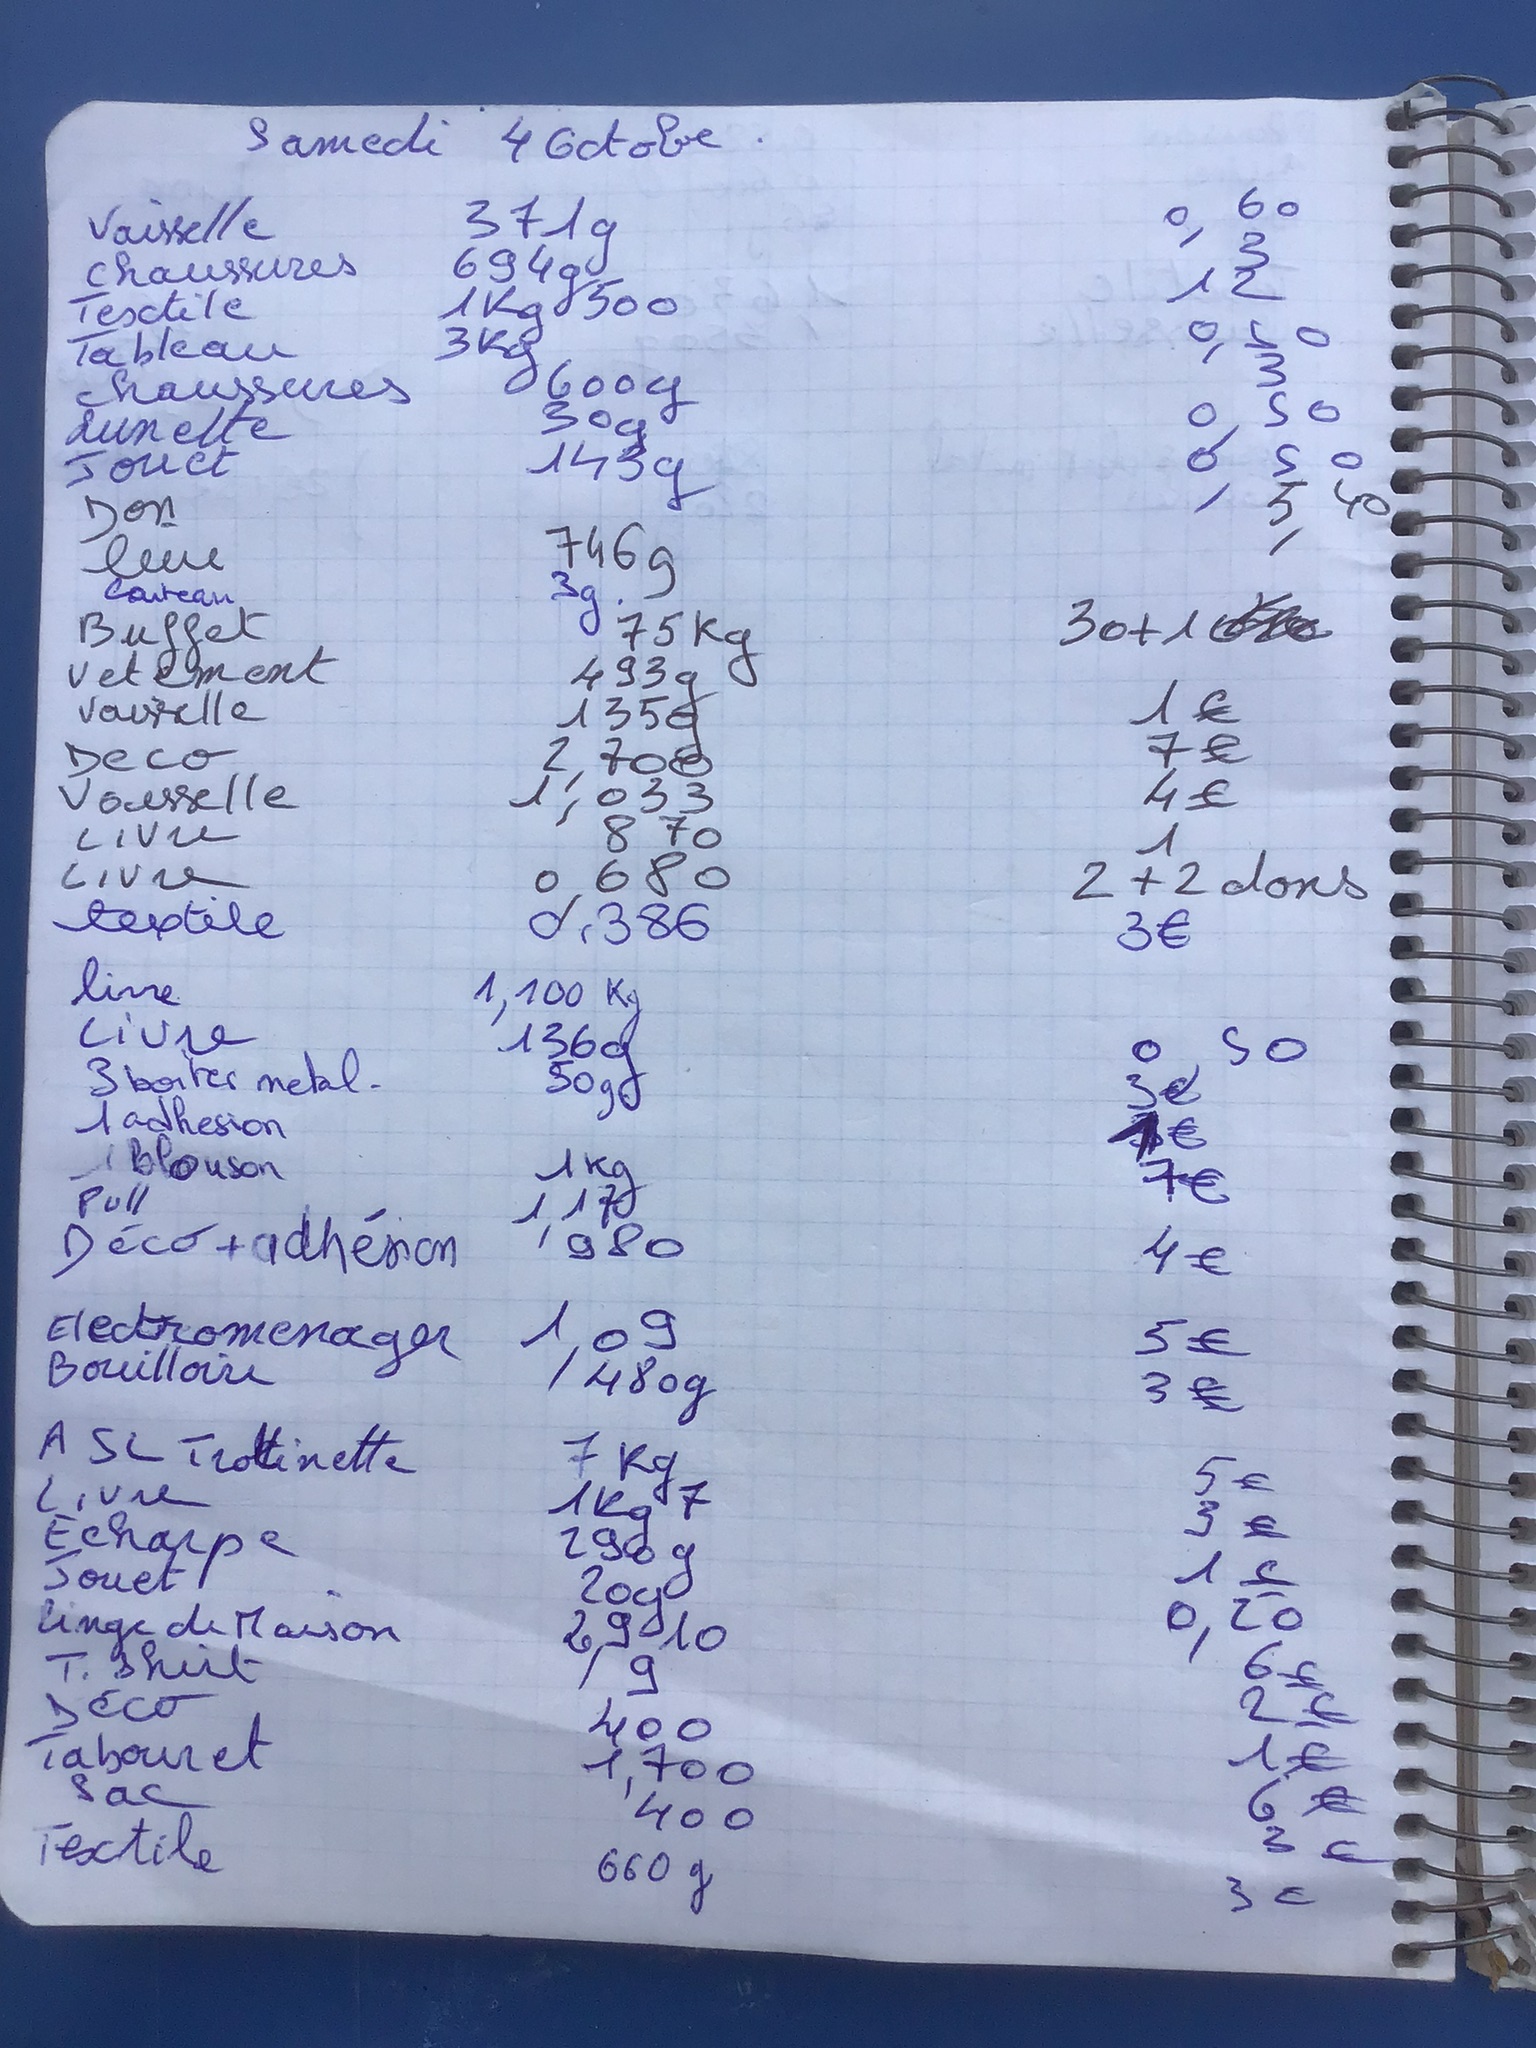 Samedi 4 Octobre.
Vaisselle 371g 0,60
chaussures 694g 3
Textile 1Kg 500 12
Tableau 3Kg 0,50
chaussures 600g 3
Lunette 30g 0,50
Jouet 143g 0,50
Don 5,40
livre 746g
3g.
Buffet 75Kg 30+1
Vetement 493g
Vaisselle 135g 1€
Deco 2,700 7€
Vaisselle 1,033 4€
Livre 870 1
Livre 0,680 2+2 dons
textile 0,386 3€
livre 1,100 Kg
Livre 136g 0,50
3 boites metal. 50g 3€
1 adhesion €
1 Blouson 1kg 7€
Pull 1,17
Déco + adhésion 980 4€
Electromenager 1,09 5€
Bouilloire 480g 3€
ASL Trottinette 7 Kg 5€
Livre 1Kg 7 3€
Echarpe g 1€
Jouet 20g 0,20
linge de Maison 10 6€
T. Shirt 9 2€
Déco 400 1€
Tabouret 1,700 6€
Sac 400 3€
Textile 660g 3€